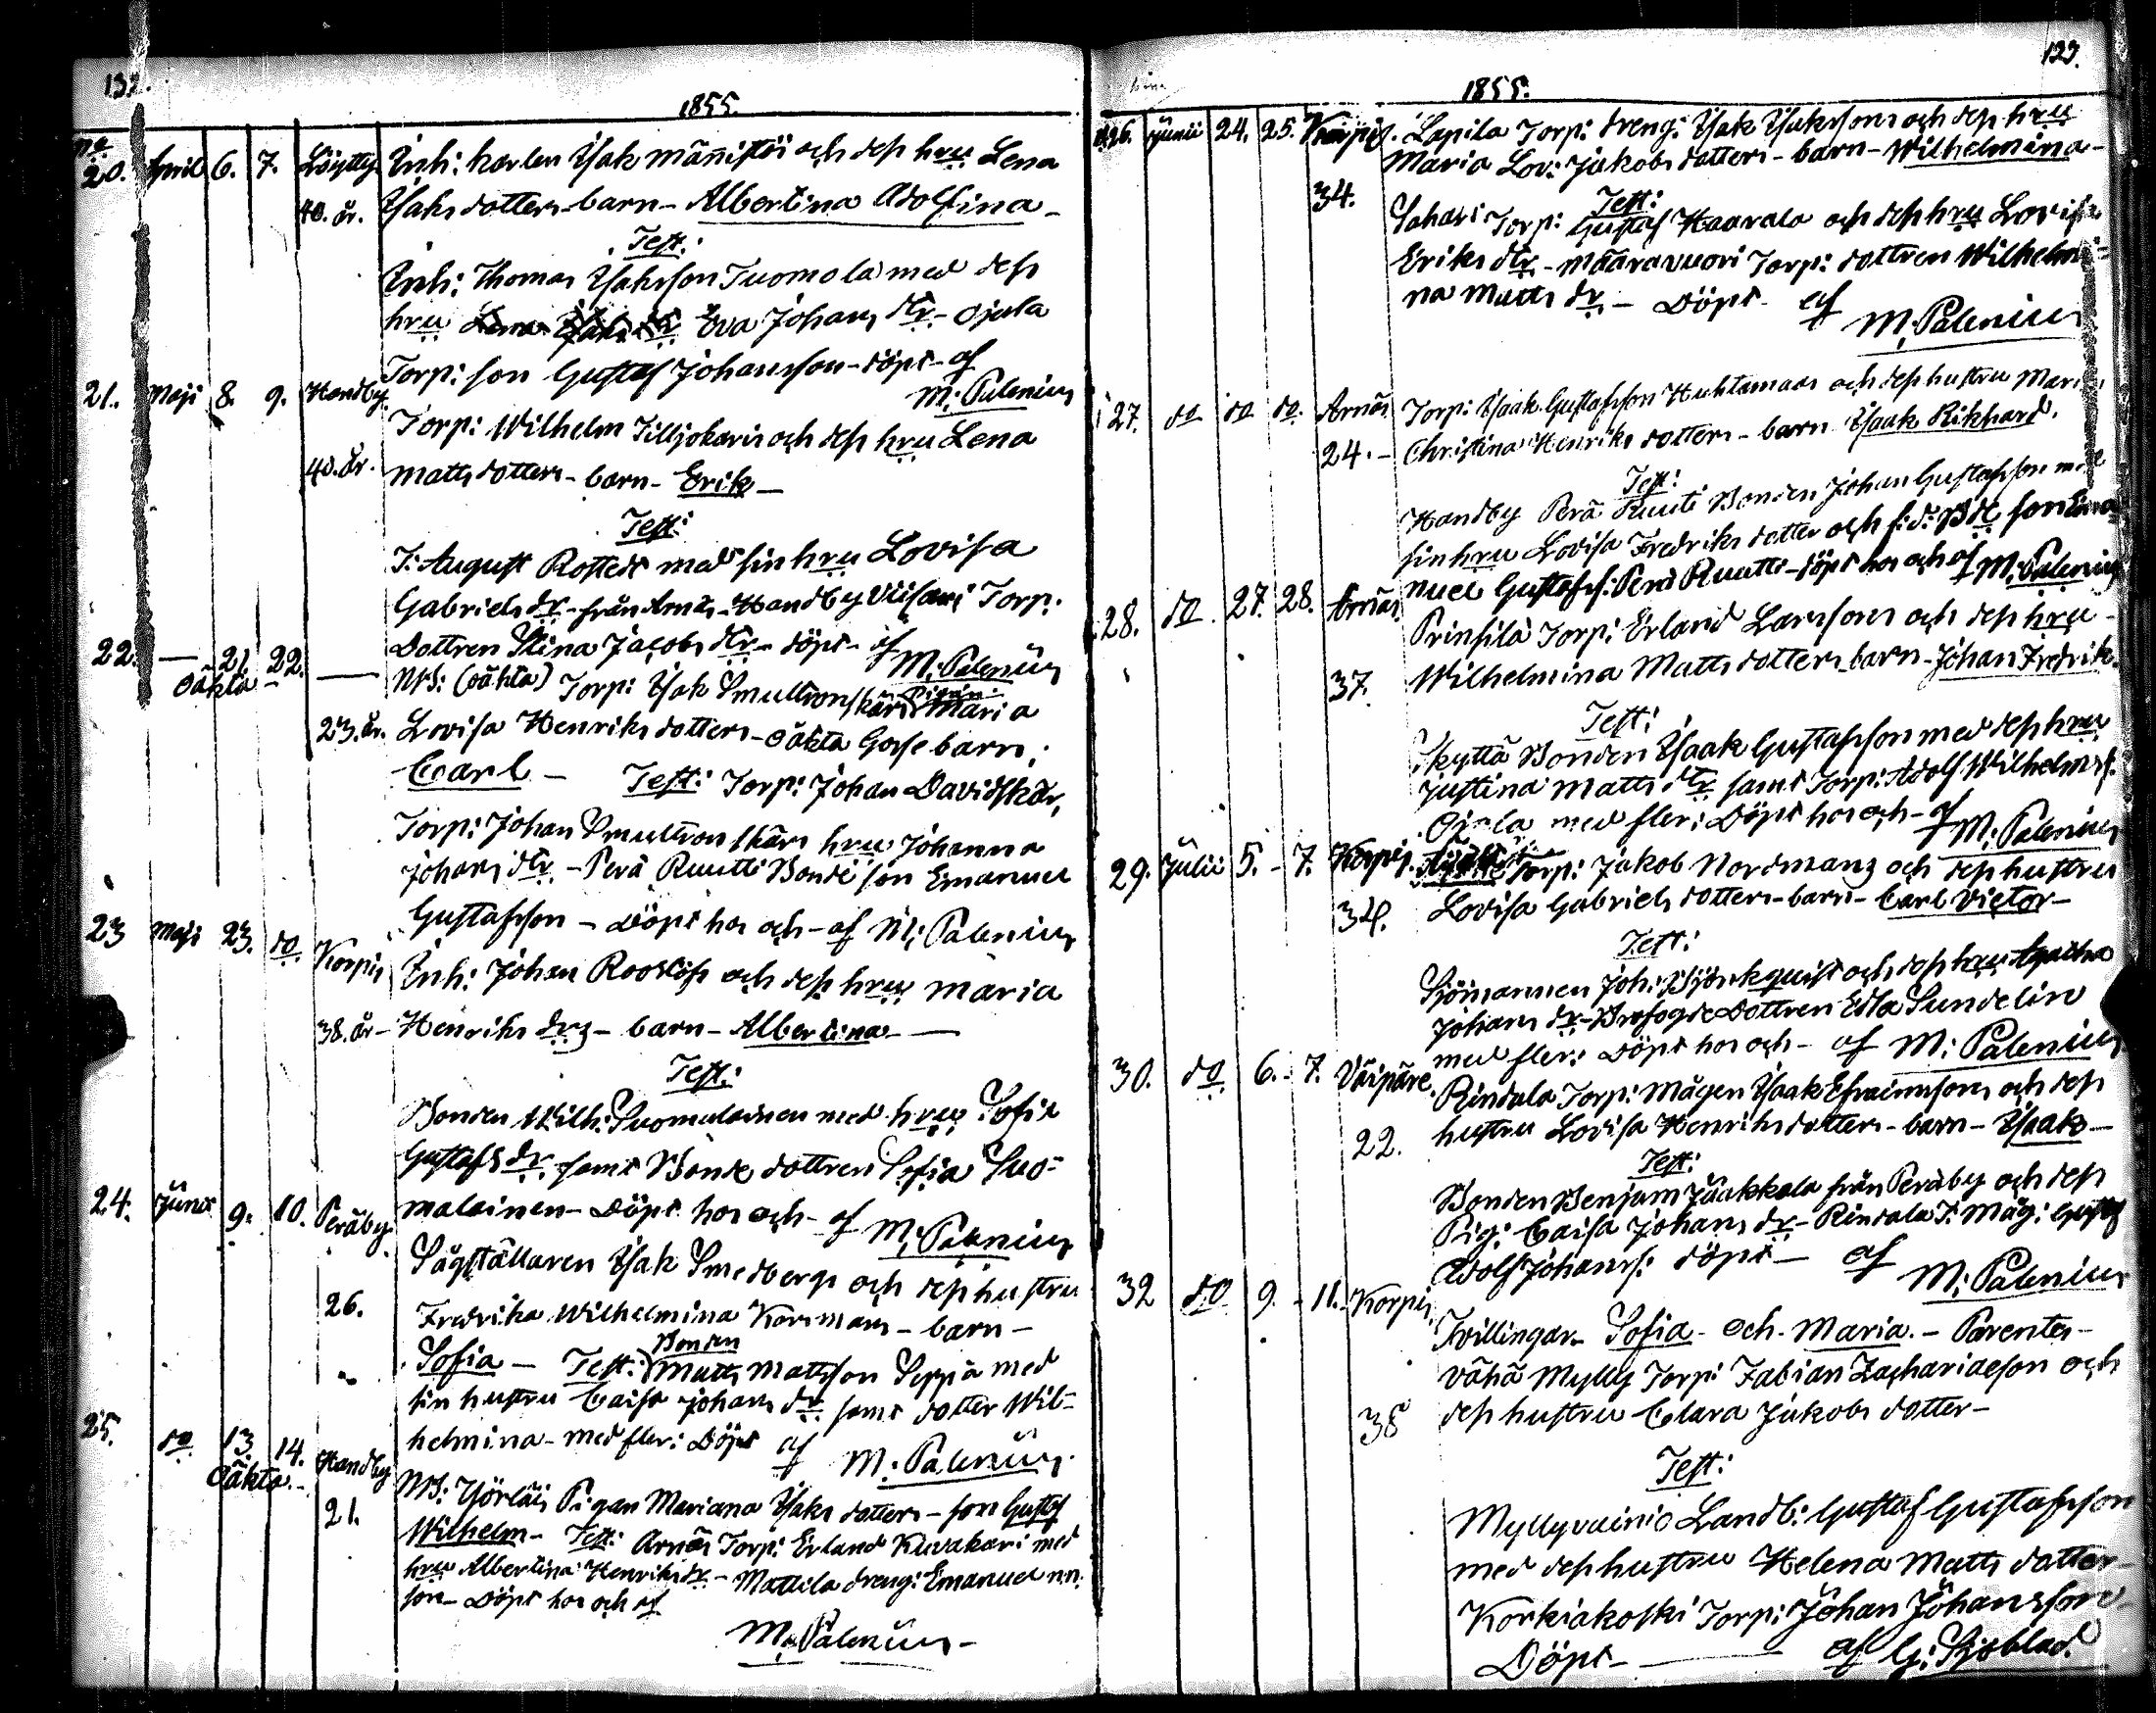 132.
1855.
No
20. April 6. 7. Löytty Inh: karlen Isak Männistöi och dess hru Lena
40. år. Isaks dotters - barn - Albertina Adolfina -
Test:
Inh: Thomas Isaksson Tuomola med dess
hru Eva Johans dtr - Ojala
Torp: son Gustaf Johansson - döpt - af
M: Palenius
21. Maji 8. 9. Handby Torp: Wilhelm Silljokaris och dess hru Lena
40. år. Matts dotters - barn - Erik -
Test:
J: August Rostedt med sin hru Lovisa
Gabriels dr - från Arnäs - Handby Viisari Torp:
Dottren Stina Jacobs dtr - döpt - af
M: Palenius
22. — 21. 22. — NB: (oäkta) Torp: Isak Smultronskärs Pigan Maria
oäkta
23. år. Lovisa Henriks dotters - oäkta Gosse barn,
Carl - Test: Torp: Johan Davidskär,
Torp: Johan Smultronskärs hru Johanna
Johans dtr - Perä Ruutti Bonde son Emanuel
Gustafsson - Döpt hos och - af M: Palenius
23 Maji 23. do. Korpis Inh: Johan Roosлöfs och dess hru Maria
38. år - Henriks drs - barn - Albertina -
Test:
Bonden Wilh: Suomalainen med hru Sofia
Gustafs dr. samt Bonde dottren Sofia Suo-
malainen - Döpt hos och - af M: Palenius
24. Junii 9. 10. Peräby Sågställaren Isak Smedbergs och dess hustru
26. Fredrika Wilhelmina Korsmans - barn -
Sofia - Test: Bonden Matts Mattsson Seppä med
sin hustru Caisa Johans dr samt dotter Wil-
helmina - med fler: Döpt af M: Palenius.
25. do. 13 14. Handby NB: Yörläis Pigan Mariana Isaks dotters - son Gustaf
oäkta. -
21. Wilhelm - Test: Arnäs Torp: Erland Kuvakari med
hru Albertina Henriks dr - Mattila dreng: Emanuel n.n.
son - Döpt hos och af
M: Palenius -
123.
1855.
No 26. Junii 24. 25. Korpis. Lapila Torp: dreng: Isak Isakssons och dess hru
Maria Lov: Jakobs dotters - barn - Wilhelmina -
34. Test:
Sahari Torp: Gustaf Haarala och dess hru Lovisa
Eriks dtr - Määravuori Torp: dottren Wilhelmi-
na Matts dr. - Döpt - af
M: Palenius
27. do do do. Arnäs Torp: Isaak Gustafsson Huhtamaas och dess hustru Maria
24. - Christina Henriks dotters - barn Isaak Rikhard.
Test:
Handby Perä Ruuti Bonden Johan Gustafsson med
sin hru Lovisa Fredriks dotter och f: d: Bde son Ema-
nuel Gustafss: Perä Ruutti - Döpt hos och af M: Palenius
28. do. 27. 28. Arnäs. Prinsilä Torp: Erland Larssons och dess hru -
37. Wilhelmina Matts dotters barn - Johan Fredrik.
Test:
Skyttä Bonden Isaak Gustafsson med dess hru
Justina Matts dtr samt Torp: Adolf Wilhelmss:
Ojala med fler: Döpt hos och - af M: Palenius
29. Julii 5. - 7. Korpis. Torp: Jakob Nordmans och dess hustru
34. Lovisa Gabriels dotters - barn - Carl Victor -
Test:
Sjömannen Joh: Björkquist och dess hru Agatha
Johans dr - Brofogde Dottren Edla Sundelin
med fler: Döpt hos och - af M: Palenius
30. do 6. - 7. Väipäre. Rindala Torp: Mågen Isaak Efraimssons och dess
22. hustru Lovisa Henriks dotters - barn - Isaak -
Test:
Bonden Benjam Jäakkola från Peräby och dess
Pig: Caisa Johans dr - Rindala T: Måg: Gustaf
Adolf Johanss: döpt - af
M: Palenius
32 do 9. - 11. Korpis, Tvillingar - Sofia - och - Maria. - Parentes -
Vähä Mylly Torp: Fabian Zachariaeson och
38 dess hustru Clara Jakobs dotter -
Test:
Myllyvainio Landb: Gustaf Gustafsson
med dess hustru Helena Matts dotter -
Korkiakoski Torp: Johan Johansson
Döpt - af G: Sjöblad.